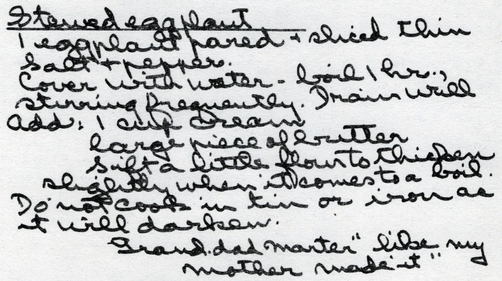 Stewed eggplant
1 eggplant pared + sliced thin
Salt + pepper.
Cover with water - boil 1 hr.,
stirring frequently. Drain well
add: 1 cup cream
large piece of butter
sift a little flour to thicken
slightly when it comes to a boil.
Do not cook in tin or iron as
it will darken.
Grand-dad Marter "like my
mother made it"